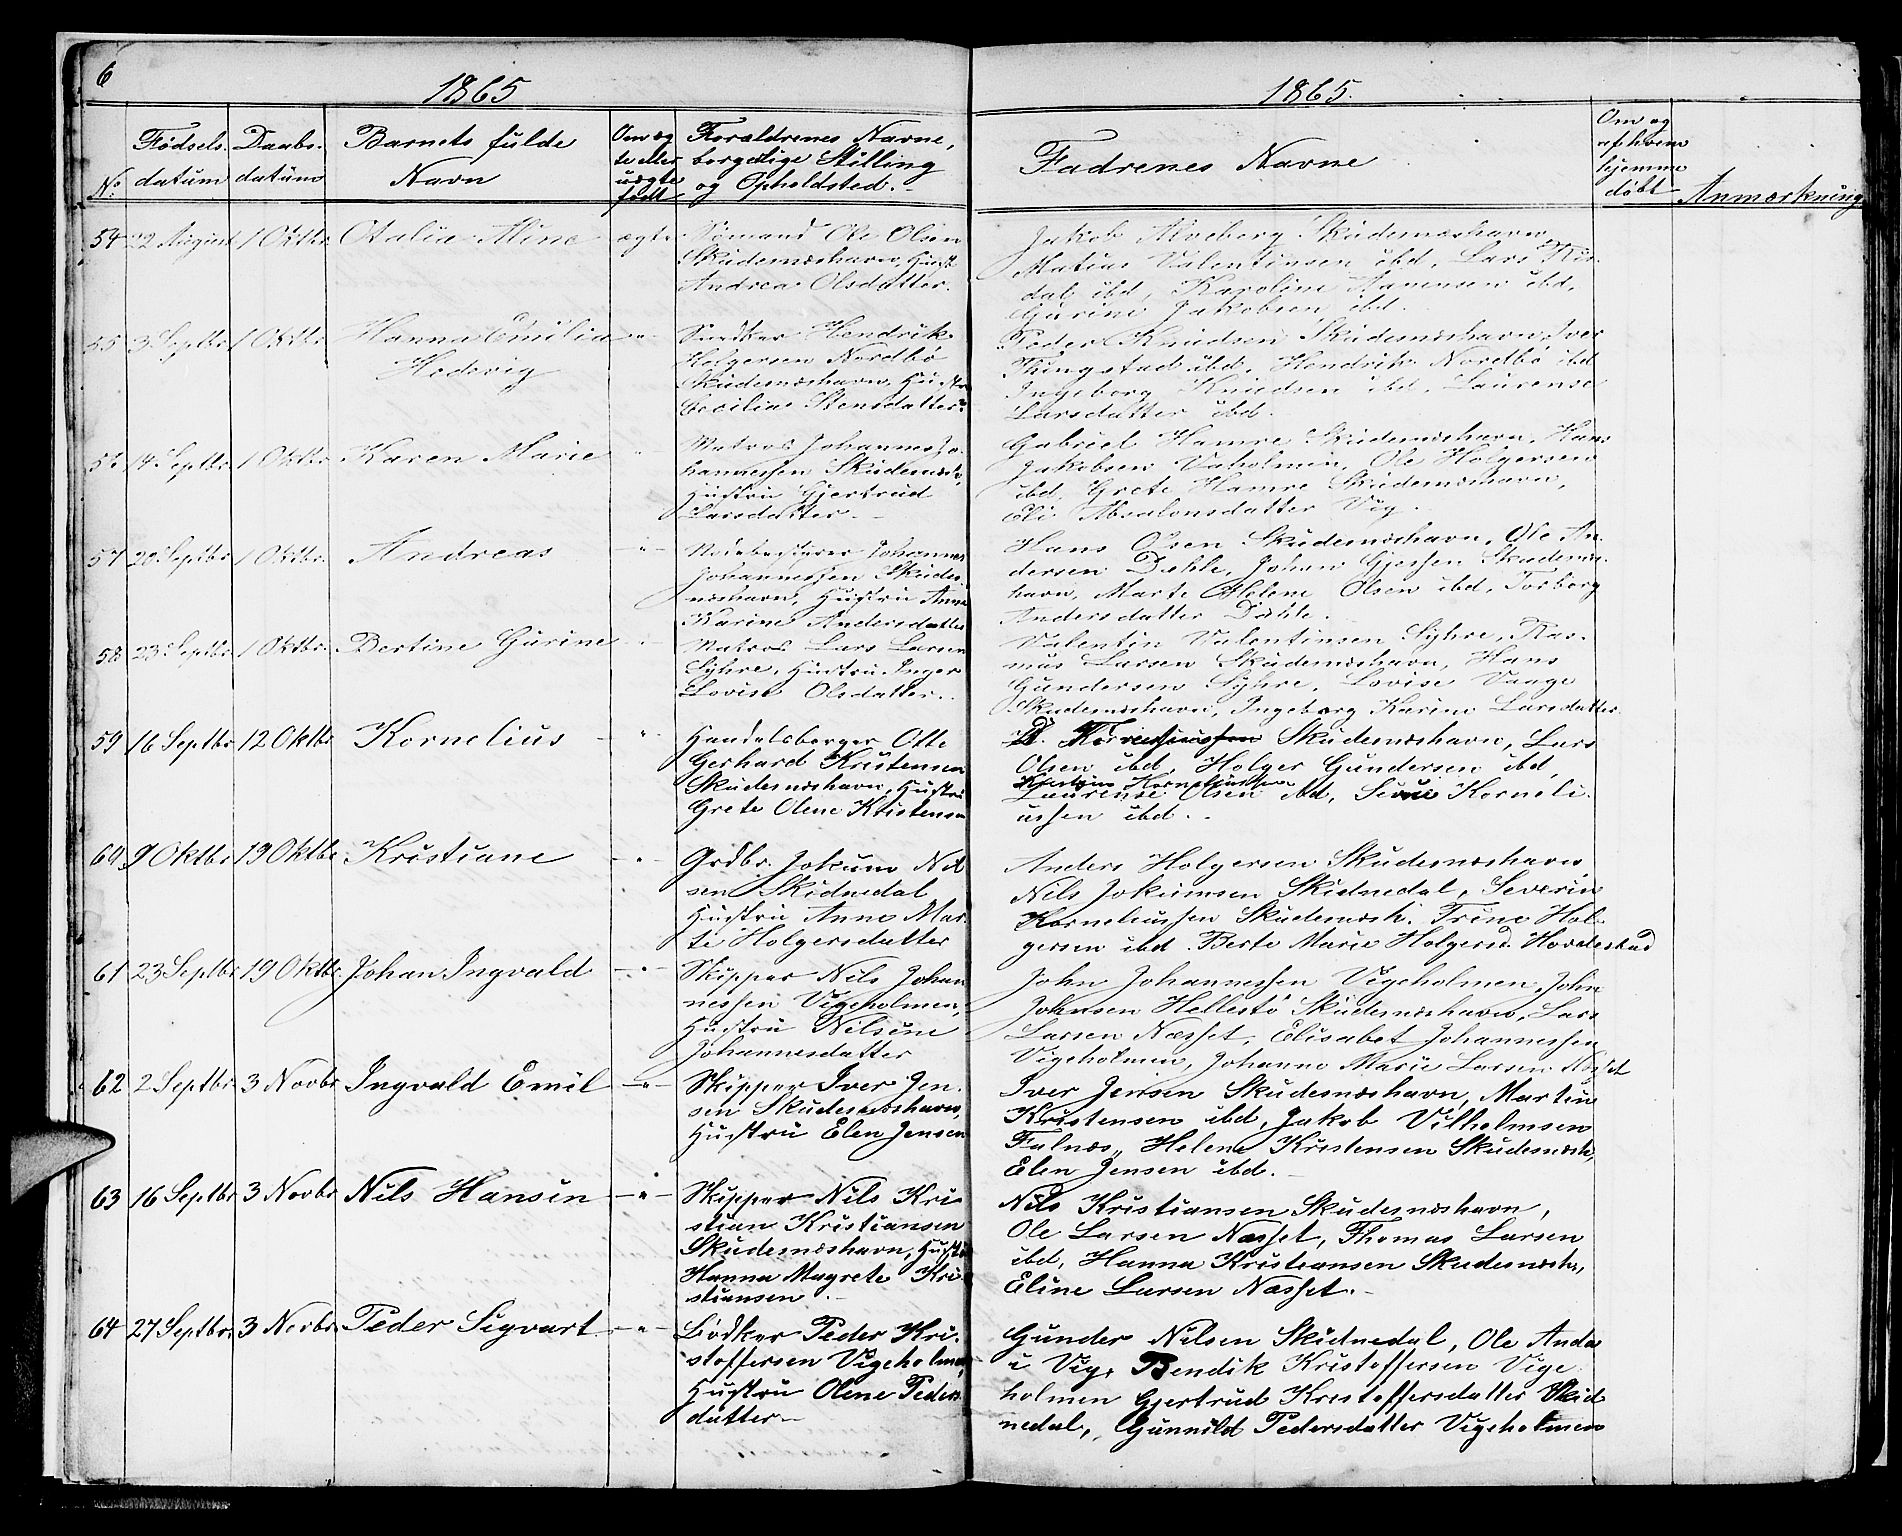 6
1865
1865.
No.
Fødsels-
datum
Daabs-
datum
Barnets fulde
Navn
Om æg
te eller
uægte
født
Forældrenes Navne,
borgerlige Stilling
og Opholdsted.
Fadrenes Navne
Om og
af hvem
hjemme
døbt
Anmærkning
54 22 August 1 Oktbr. Otalia Aline ægte
Sømand Ole Olsen
Skudesnæshavn, Hust
Andrea Olsdatter.
Jakob Alveberg Skudesnæshavn
Matias Valentinsen ibd, Lars
dal ibd, Karoline Hansen ibd,
Gurine Jakobsen ibd.
55 3 Septbr 1 Oktbr Hanna Emilia -"-
Hedevig
Snedker Hendrik
Holgersen Nordbö
Skudesnæshavn, Hustru
Cecilia Stensdatter.
Peder Knudsen Skudesnæshavn, Iver
Tungstad ibd, Hendrik Nordbö ibd
Ingeborg Knudsen ibd, Laurense
Larsdatter ibd.
56 14 Septbr 1 Oktbr Karen Marie "
Matros Johannes Jo
hannessen Skudesnæsh,
Hustru Gjertrud
Larsdatter.
Gabriel Hamre Skudesnæshavn, Hans
Jakobsen Vaholmen, Ole Holgersen
ibd, Grete Hamre Skudesnæshavn,
Eli Absalonsdatter Vig.
57 20 Septbr 1 Oktbr. Andreas -"-
Johannes
Johannessen Skudes-
næshavn, Hustru Anne
Karine Andersdatter
Hans Olsen Skudesnæshavn, Ole An-
dersen Dahle, Johan Gjersen Skudesnæs-
havn, Marte Helene Olsen ibd, Torborg
Andersdatter Dahle.
58 23 Septbr 1 Oktbr. Bertine Gurine "
Matros Lars Larsen
Syhre, Hustru Inger
Lovise Olsdatter.
Valentin Valentinsen Syhre, Ras-
mus Larsen Skudesnæshavn, Hans
Gundersen Syhre, Lovise Vaage
Skudesnæshavn, Ingeborg Karine Larsdatter
59 16 Septbr 12 Oktbr Kornelius -"-
Handelsborger Otto
Gerhard Kristensen
Skudesnæshavn, Hustru
Grete Olene Kristensen
Skudesnæshavn, Lars
Olsen ibd, Holger Gundersen ibd,
Korneliussen
Laurense Olsen ibd, Korneli-
ussen ibd.
60 9 Oktbr 19 Oktbr Kristiane -"-
Grdbr. Jokum Nil
sen Skidnedal
Hustru Anne Mar-
te Holgersdatter
Anders Holgersen Skudesnæshavn
Nils Jokumsen Skidnedal, Severin
Korneliussen Skudesnæsh. Trine Hol-
gersen ibd. Berte Marie Holgersd. Hovdestad
61 23 Septbr 19 Oktbr. Johan Ingvald -"-
Skipper Nils Johan
nessen Vigeholmen,
Hustru Nilsine
Johannesdatter
John Johannessen Vigeholmen, John
Johnsen Hellestö Skudesnæshavn, Lars
Larsen Næsset, Elisabet Johannessen
Vigeholmen, Johanne Marie Larsen Næsset
62 2 Septbr 3 Novbr Ingvald Emil -"-
Skipper Iver Jen-
sen Skudesnæshavn,
Hustru Elen Jensen
Iver Jensen Skudesnæshavn, Martin
Kristensen ibd, Jakob Vilhelmsen
Falnæs, Helene Kristensen Skudesnæsh,
Elen Jensen ibd.
63 16 Septbr 3 Novbr Nils Hansin -"-
Skipper Nils Kri
stian Kristiansen
Skudesnæshavn, Hustru
Hanna Magrete Kri
stiansen.
Nils Kristiansen Skudesnæshavn,
Ole Larsen Næsset, Thomas Larsen
ibd, Hanna Kristiansen Skudesnæsh.,
Eline Larsen Næsset.
64 27 Septbr. 3 Novbr. Peder Sigvart -"-
Bödker Peder Kri-
stoffersen Vigeholmen,
Hustru Olene Peders
datter
Gunder Nilsen Skidnedal, Ole Anda
i Vig, Bendik Kristoffersen Vige
holmen Gjertrud Kristoffersdatter Skid
nedal, Gunnild Pedersdatter Vigeholmen